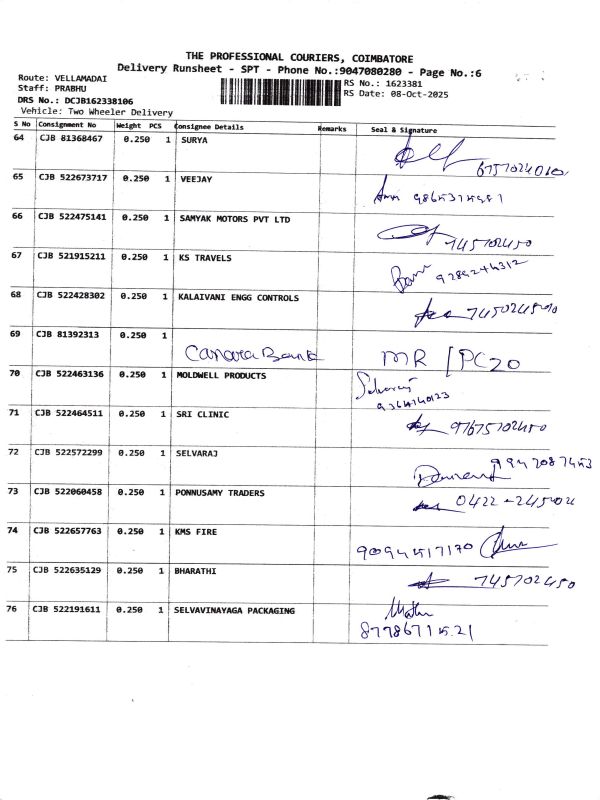 THE PROFESSIONAL COURIERS, COIMBATORE
Delivery Runsheet - SPT - Phone No.:9047080280 - Page No.:6
Route: VELLAMADAI
Staff: PRABHU
DRS No.: DCJB162338106
Vehicle: Two Wheeler Delivery
RS No.: 1623381
RS Date: 08-Oct-2025
S No Consignment No Weight PCS Consignee Details Remarks Seal & Signature
64 CJB 81368467 0.250 1 SURYA
65 CJB 522673717 0.250 1 VEEJAY
66 CJB 522475141 0.250 1 SAMYAK MOTORS PVT LTD
745702450
67 CJB 521915211 0.250 1 KS TRAVELS
9289244312
68 CJB 522428302 0.250 1 KALAIVANI ENGG CONTROLS
69 CJB 81392313 0.250 1
Canara Bank MR / PC20
70 CJB 522463136 0.250 1 MOLDWELL PRODUCTS
71 CJB 522464511 0.250 1 SRI CLINIC
72 CJB 522572299 0.250 1 SELVARAJ
9947087453
73 CJB 522060458 0.250 1 PONNUSAMY TRADERS
74 CJB 522657763 0.250 1 KMS FIRE
75 CJB 522635129 0.250 1 BHARATHI
745702450
76 CJB 522191611 0.250 1 SELVAVINAYAGA PACKAGING